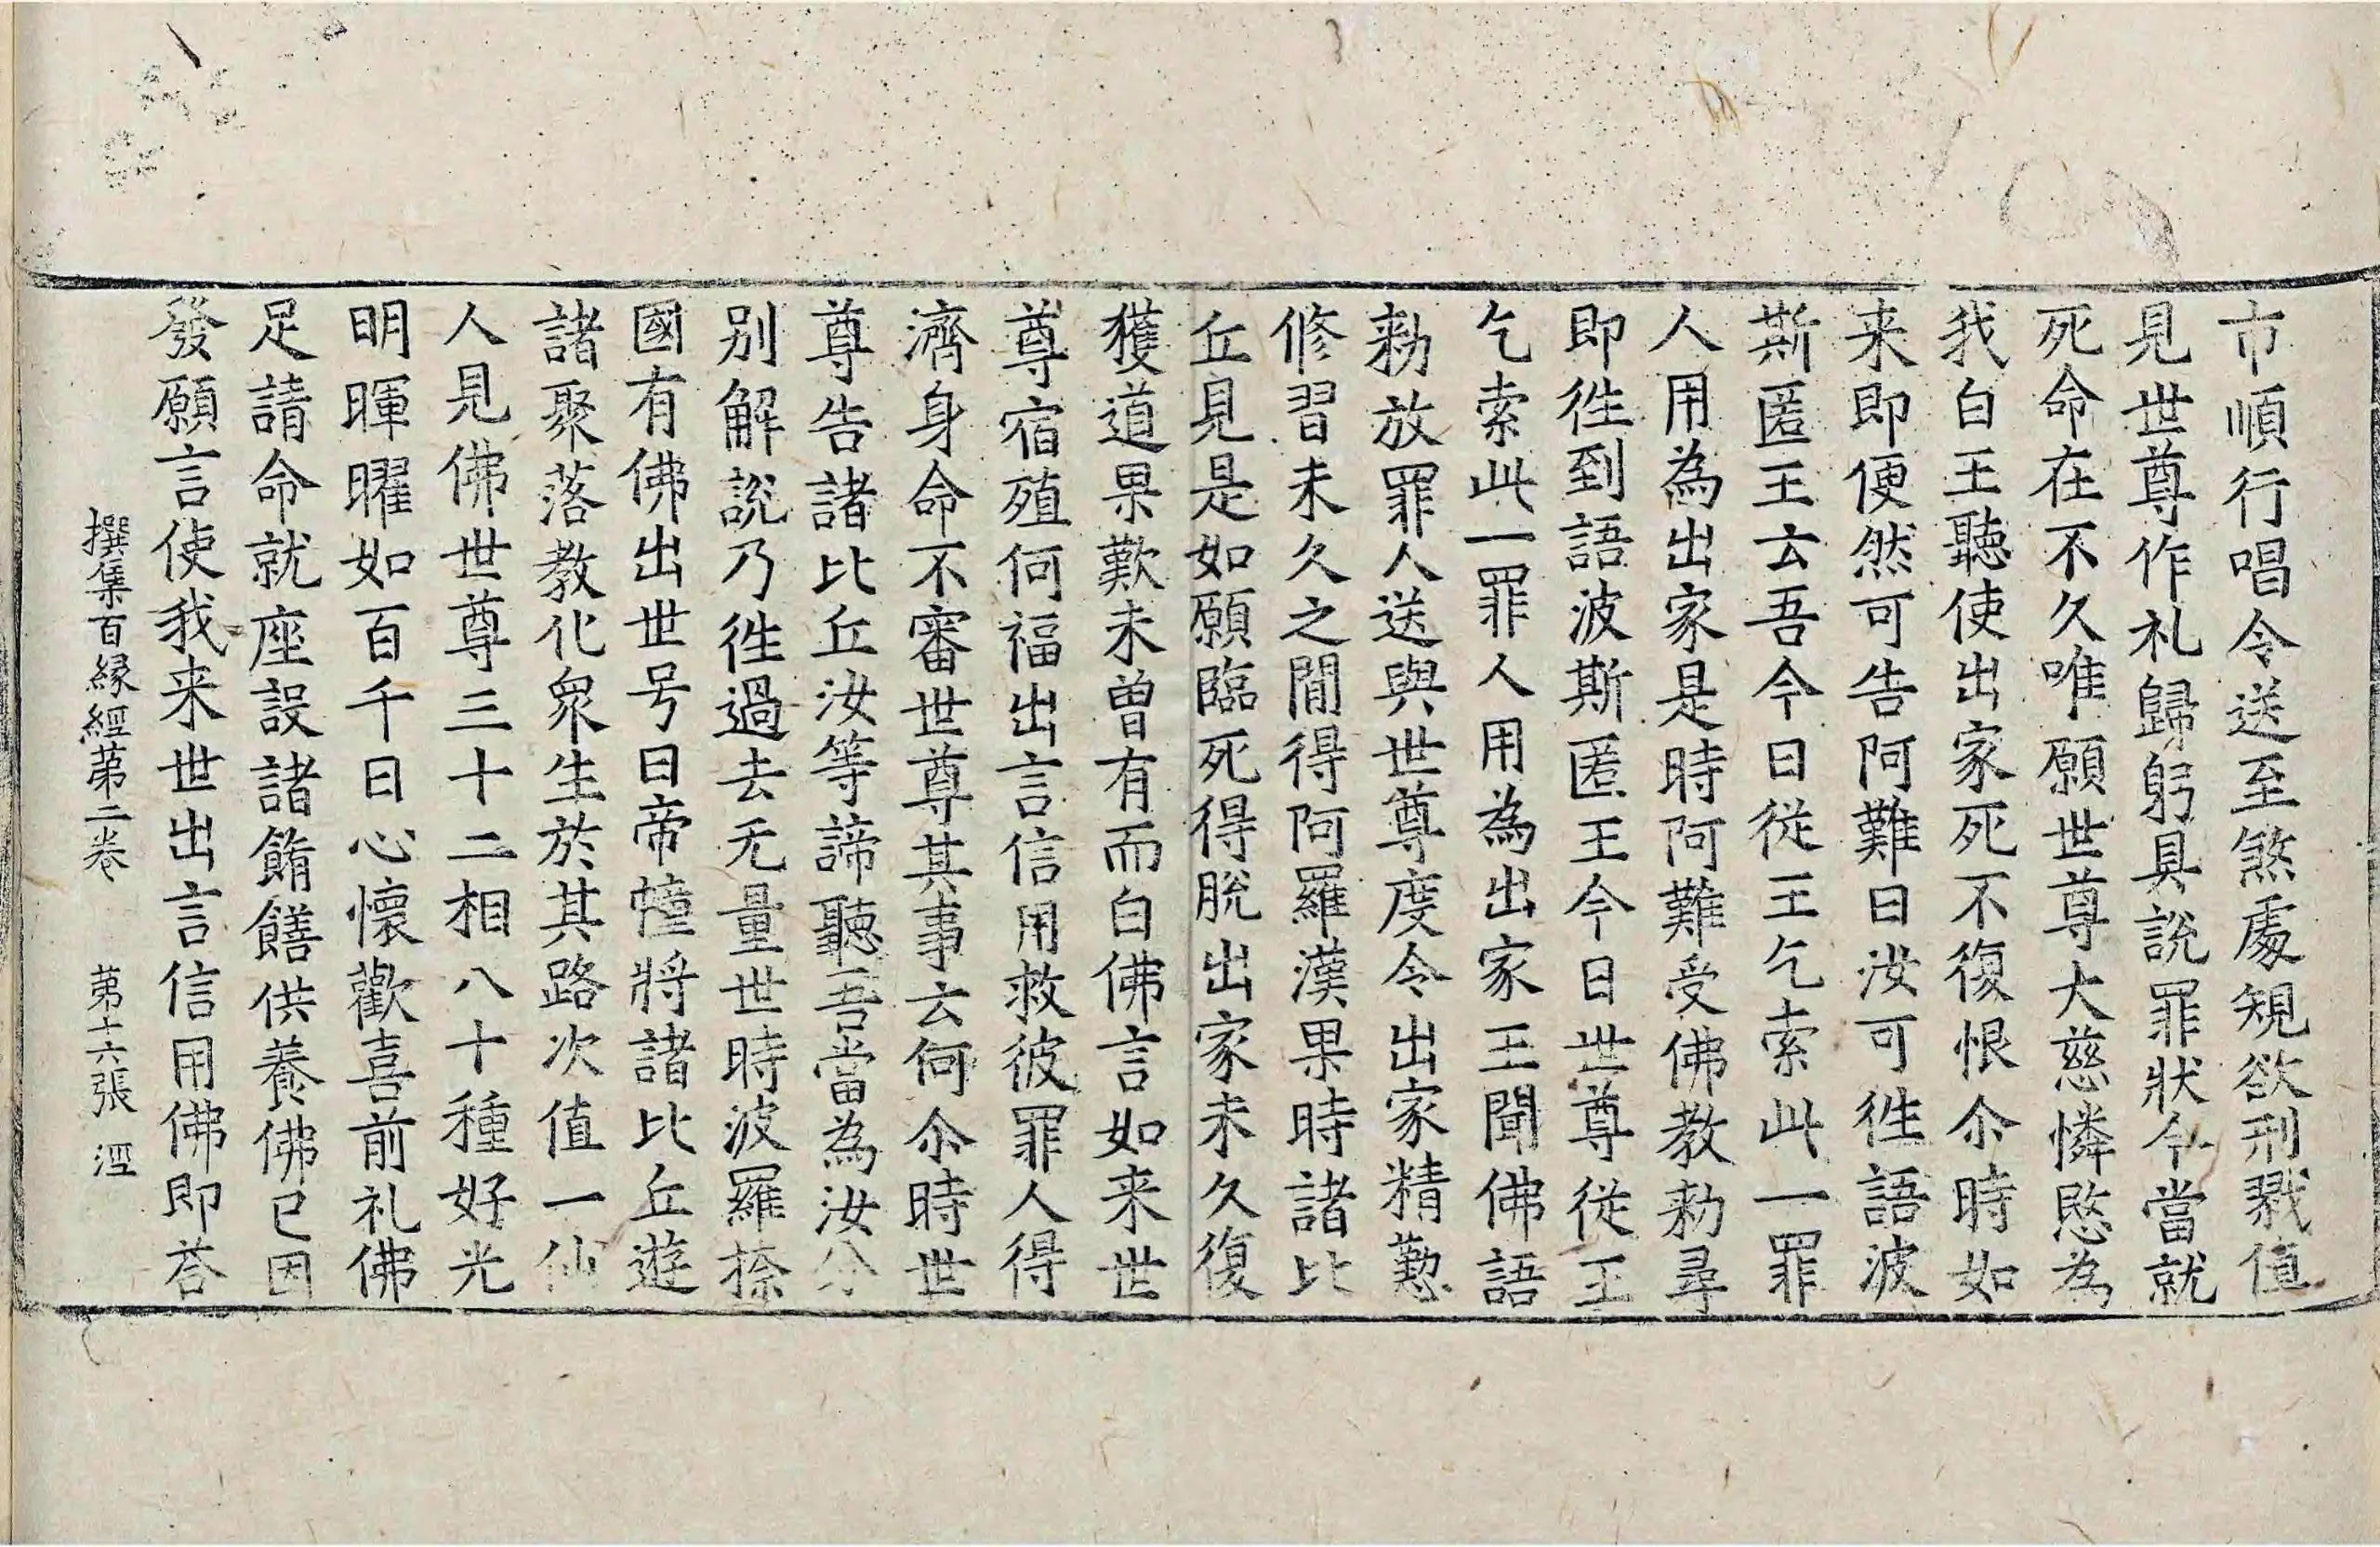 市順行唱令送至煞處規欲刑戮值
見世尊作礼歸躬具說罪狀今當就
死命在不久唯願世尊大慈憐愍為
我白王聽使出家死不復恨尒時如
来即便然可告阿難曰汝可徃語波
斯匿王云吾今日從王乞索此一罪
人用為出家是時阿難受佛教勑尋
即徃到語波斯匿王今日世尊從王
乞索此一罪人用為出家王聞佛語
勑放罪人送與世尊度令出家精懃
修習未久之間得阿羅漢果時諸比
丘見是如願臨死得脫出家未久復
獲道果歎未曾有而白佛言如来世
尊宿殖何福出言信用救彼罪人得
濟身命不審世尊其事云何尒時世
尊告諸比丘汝等諦聽吾當為汝分
别解說乃徃過去无量世時波羅捺
國有佛出世号曰帝幢將諸比丘遊
諸聚落教化衆生於其路次值一仙
人見佛世尊三十二相八十種好光
明暉曜如百千日心懷歡喜前礼佛
足請命就座設諸餚饍供養佛已因
發願言使我来世出言信用佛即荅
撰集百緣經苐二卷 苐十六張 涇